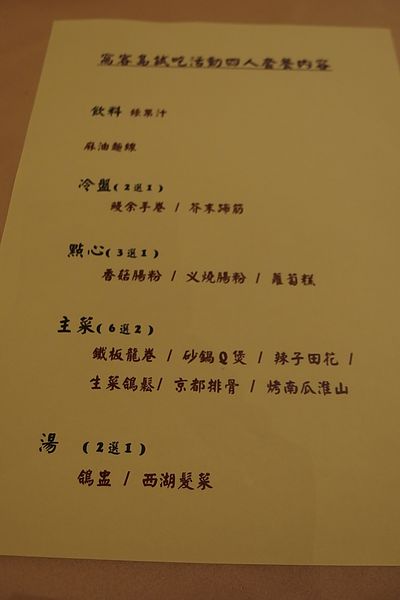 窩客島試吃活動四人套餐內容
飲料 綠果汁
麻油麵線
冷盤(2選1)
鰻余手卷 / 芥末蹄筋
點心(3選1)
香菇腸粉 / 义燒腸粉 / 蘿蔔糕
主菜(6選2)
鐵板龍卷 / 砂鍋Q煲 / 辣子田花 /
生菜鴿鬆/ 京都排骨 / 烤南瓜淮山
湯 (2選1)
鴿盅 / 西湖髮菜